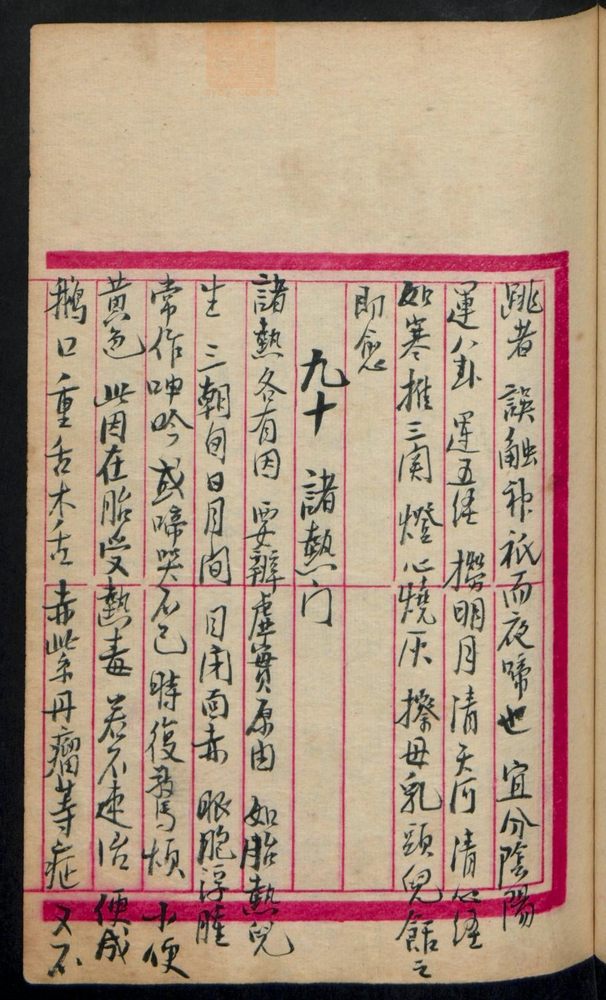 跳者 誤触神祇而夜啼也 宜分陰陽
運八卦 運五経 撈明月 清天河 清心経
如寒推三関 燈心燒灰 擦母乳頭兒餂之
即愈
九十 諸熱门
諸熱各有因 要辨虛實原由 如胎熱兒
生 三朝旬日月间 目闭面赤 眼胞浮腫
常作呻吟 或啼哭不已 時復驚煩 小便
黃色 此因在胎受熱毒 若不速治 便成
鵝口重舌木舌 赤紫丹瘤等症 又不